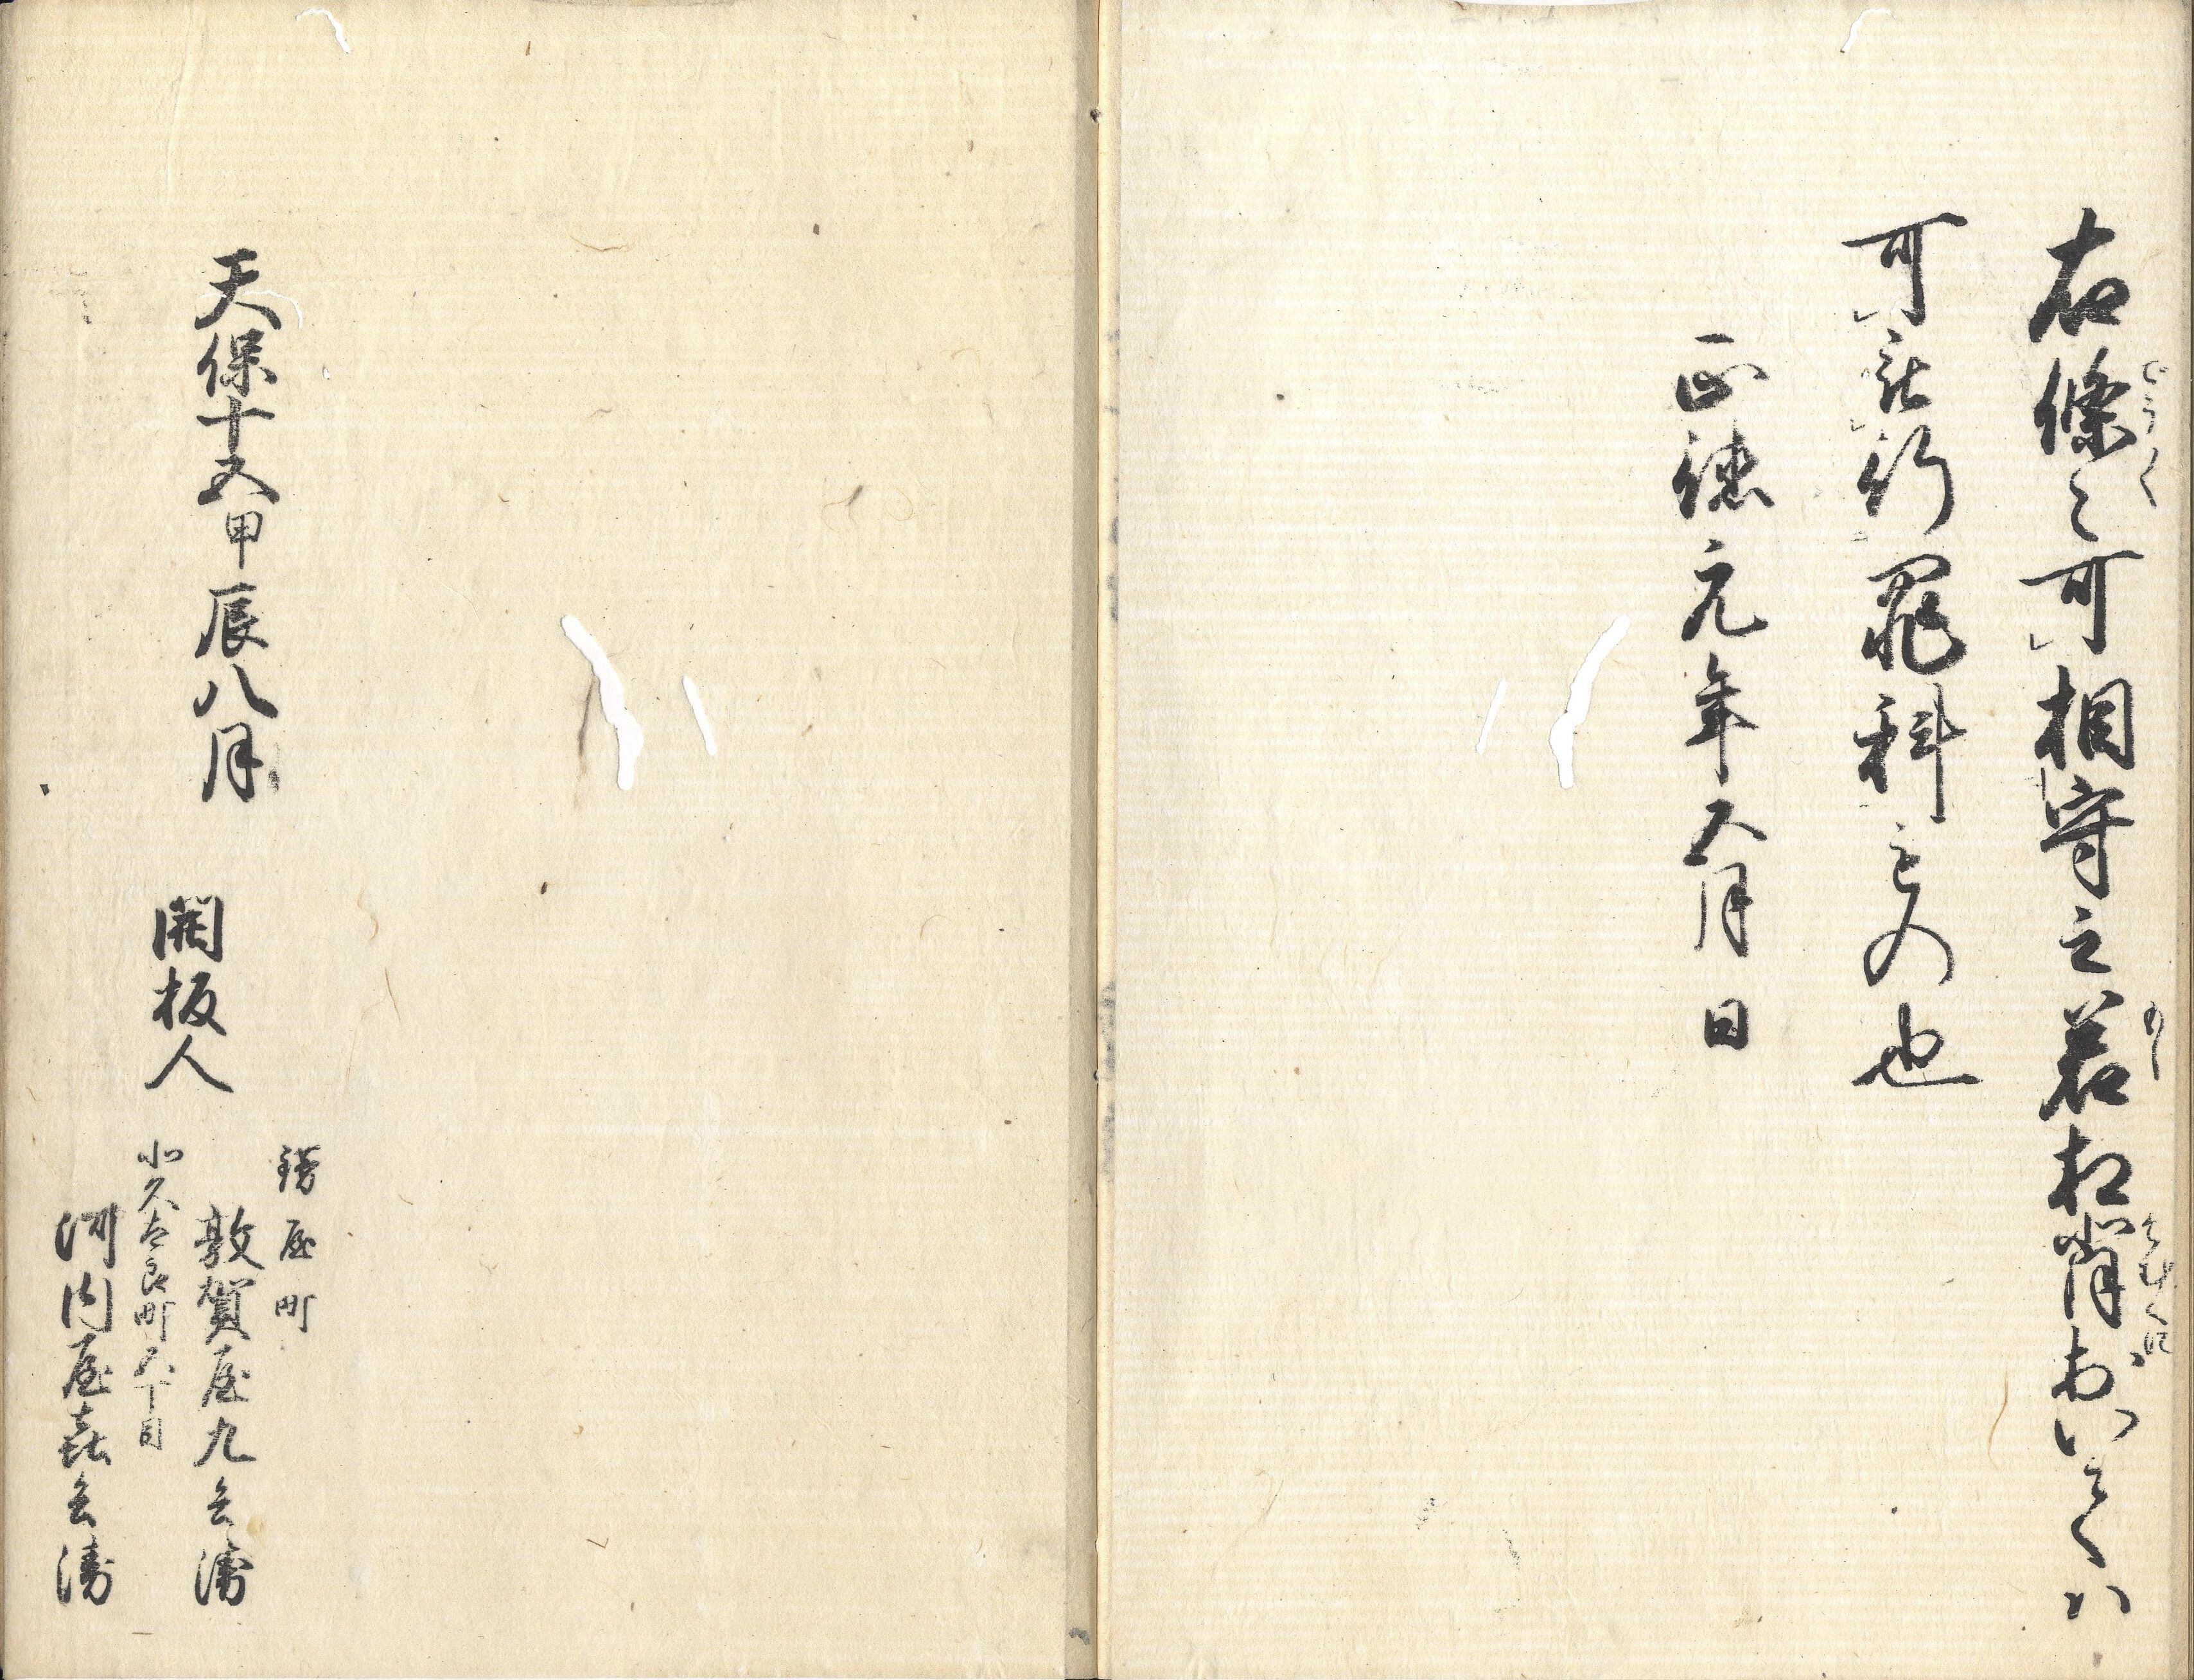 右條々可相守之若相背おいてハ
じやう〱
もし
そむくに
可被行罪科もの也
正徳元年五月日
天保十五甲辰八月
開板人
錺屋町
敦賀屋九兵衛
北久太良町五丁目
河内屋喜兵衛